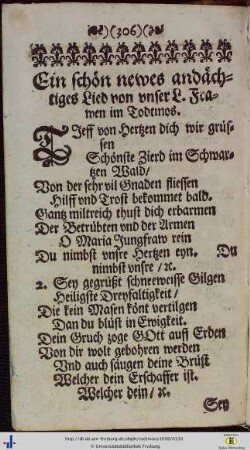 (306)
Ein schön newes andäch-
tiges Lied von vnser L. Fra-
wen im Todtmos.
TIeff von Hertzen dich wir grüs-
sen
Schönste Zierd im Schwar-
tzen Wald/
Von der sehr vil Gnaden fliessen
Hilff vnd Trost bekommet bald.
Gantz miltreich thust dich erbarmen
Der Betrübten vnd der Armen
O Maria Jungfraw rein
Du nimbst vnsre Hertzen eyn. Du
nimbst vnsre/ ꝛc.
2. Sey gegrüßt schneeweisse Gilgen
Heiligste Dreyfaltigkeit/
Die kein Masen könt vertilgen
Dan du blüst in Ewigkeit.
Dein Gruch zoge GOtt auß Erden
Von dir wolt gebohren werden
Vnd auch saugen deine Brüst
Welcher dein Erschaffer ist.
Welcher dein/ ꝛc.
Sey
© Universitätsbibliothek Freiburg